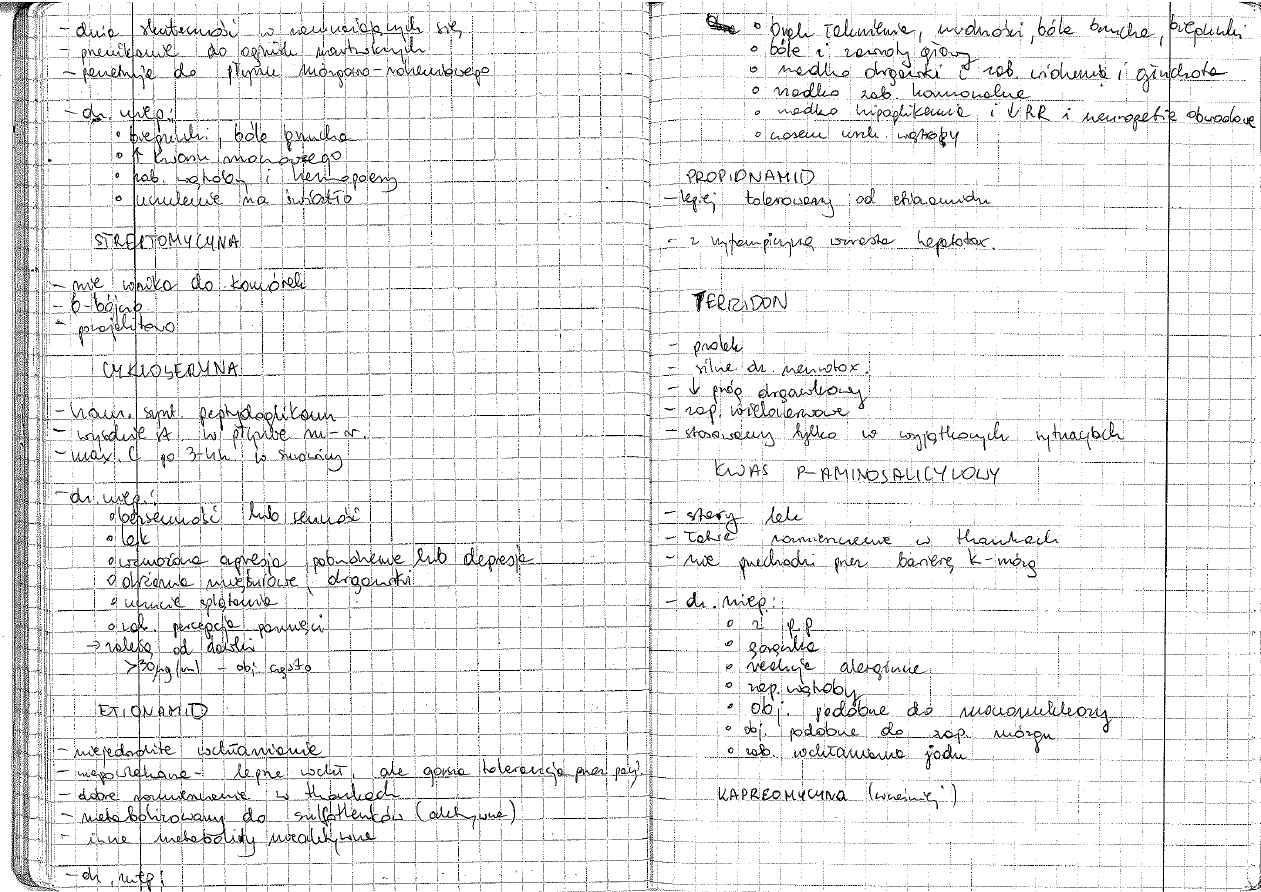 - duża skuteczność w namnażających się
- przenikanie do ognisk martwiczych
- penetruje do płynu mózgowo-rdzeniowego
- dz. niep:
• biegunki, bóle brzucha
• ↑ kwasu moczowego
• zab. wątroby i hemopoezy
• uczulenie na światło
STREPTOMYCYNA
- nie wnika do komórek
- b-bójcza
- pozajelitowo
CYKLOSERYNA
- ham. synt. peptydoglikanu
- wysokie st. w płynie m-r.
- max. C po 3-4h w surowicy
- dz. niep:
• bezsenność lub senność
• lęk
• wzmożona agresja pobudzenie lub depresja
• drżenia mięśniowe, drgawki
• uczucie splątania
• zab. percepcja pamięci
→ zależą od dawki
>30μg/ml - obj. często
ETIONAMID
- niejednolite wchłanianie
- niepowlekane - lepsze wchł, ale gorsza tolerancja przez pacj.
- dobre rozmieszczenie w tkankach
- metabolizowany do sulfotlenków (aktywne)
- inne metabolity nieaktywne
- dz. niep:
• brak łaknienia, nudności, bóle brzucha, biegunki
• bóle i zawroty głowy
• rzadko drgawki i zab. widzenia i głuchota
• rzadko zab. hormonalne
• rzadko hipoglikemia i ↓RR i neuropatie obwodowe
• czasem uszk. wątroby
PROPIONAMID
- lepiej tolerowany od etionamidu
- z ryfampicyną wzrasta hepatotox.
TERIZIDON
- prolek
- silne dz. neurotox.
- ↓ próg drgawkowy
- zap. wielonerwowe
- stosowany tylko w wyjątkowych sytuacjach
KWAS P-AMINOSALICYLOWY
- stary lek
- łatwe rozmieszczenie w tkankach
- nie przechodzi przez barierę k-mózg
- dz. niep:
• z p.p
• gorączka
• reakcje alergiczne
• zap. wątroby
• obj. podobne do mononukleozy
• obj. podobne do zap. mózgu
• zab. wchłaniania jodu
KAPREOMYCYNA (wcześniej)